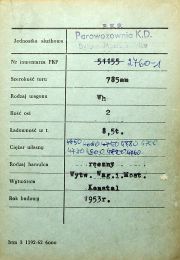 Jednostka służbowa
Parowozownia K.D.
Nr inwentarza PKP 51155 2760-1
Szerokość toru 785mm
Rodzaj wagonu Wh
Ilość osi 2
Ładowność w t. 8,5t.
Ciężar własny
Rodzaj hamulca ręczny
Wytw. Wag.i Most.
Wytwórnia Konstal
Rok budowy 1953r.